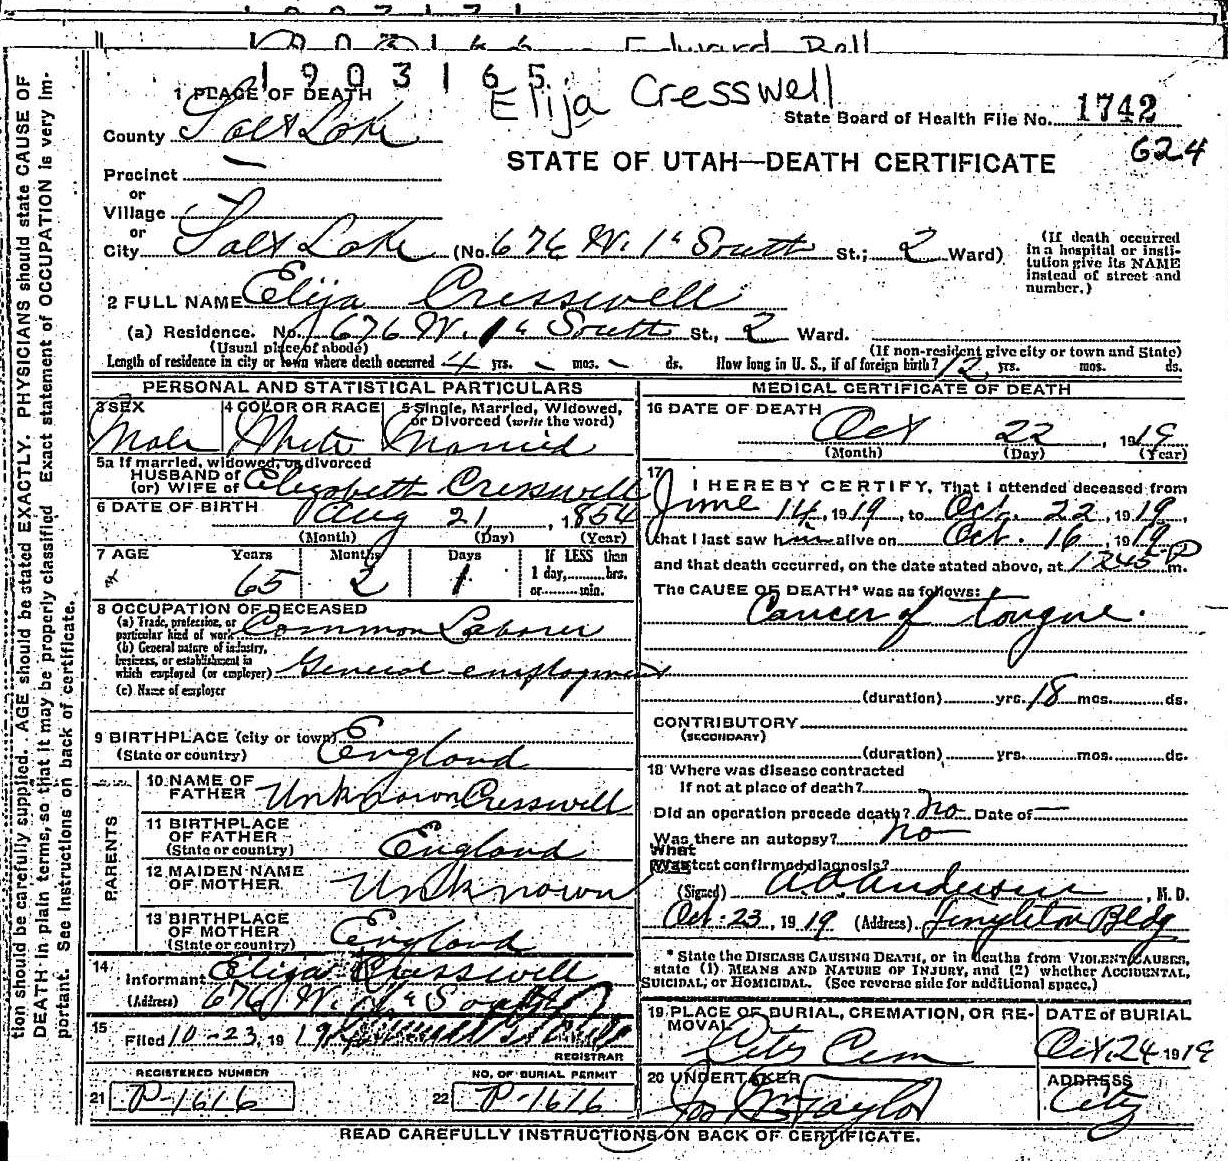 Edward Bell
1903165
Elija Cresswell
1 PLACE OF DEATH
State Board of Health File No. 1742
County Salt Lake
624
STATE OF UTAH—DEATH CERTIFICATE
Precinct —
or
Village
or
City Salt Lake (No. 676 W. 1st South St.; 2 Ward)
(If death occurred in a hospital or institution give its NAME instead of street and number.)
2 FULL NAME Elija Cresswell
(a) Residence. No. 676 W. 1st South St., 2 Ward.
(Usual place of abode) (If non-resident give city or town and State)
Length of residence in city or town where death occurred 4 yrs. - mos. - ds. How long in U. S., if of foreign birth? 12 yrs. mos. ds.
PERSONAL AND STATISTICAL PARTICULARS
3 SEX 4 COLOR OR RACE 5 Single, Married, Widowed, or Divorced (write the word)
Male White Married
5a If married, widowed, or divorced
HUSBAND of
(or) WIFE of Elizabeth Cresswell
6 DATE OF BIRTH Aug 21, 1854
(Month) (Day) (Year)
7 AGE Years Months Days If LESS than
65 2 1 1 day,......hrs.
or......min.
8 OCCUPATION OF DECEASED
(a) Trade, profession, or particular kind of work Common Laborer
(b) General nature of industry, business, or establishment in which employed (or employer) General employment
(c) Name of employer
9 BIRTHPLACE (city or town) England
(State or country)
PARENTS
10 NAME OF FATHER Unknown Cresswell
11 BIRTHPLACE OF FATHER England
(State or country)
12 MAIDEN NAME OF MOTHER Unknown
13 BIRTHPLACE OF MOTHER England
(State or country)
14 Informant Eliza Cresswell
(Address) 676 W. 1st South
15 Filed 10-23, 19 19
REGISTRAR
REGISTERED NUMBER NO. OF BURIAL PERMIT
21 P-1616 22 P-1616
MEDICAL CERTIFICATE OF DEATH
16 DATE OF DEATH Oct 22, 1919
(Month) (Day) (Year)
17 I HEREBY CERTIFY, That I attended deceased from
June 14, 1919, to Oct. 22, 1919,
that I last saw him alive on Oct. 16, 1919
and that death occurred, on the date stated above, at 1245 P m.
The CAUSE OF DEATH* was as follows:
Cancer of tongue.
(duration) yrs. 18 mos. ds.
CONTRIBUTORY
(SECONDARY)
(duration) yrs. mos. ds.
18 Where was disease contracted
If not at place of death?
Did an operation precede death? no Date of —
Was there an autopsy? no
What test confirmed diagnosis?
(Signed) A. O. Anderson, M. D.
Oct. 23, 1919 (Address) Singleton Bldg
* State the DISEASE CAUSING DEATH, or in deaths from VIOLENT CAUSES,
state (1) MEANS AND NATURE OF INJURY, and (2) whether ACCIDENTAL,
SUICIDAL, or HOMICIDAL. (See reverse side for additional space.)
19 PLACE OF BURIAL, CREMATION, OR REMOVAL DATE of BURIAL
City Cem Oct. 24 1919
20 UNDERTAKER ADDRESS
Jos Wm Taylor City
READ CAREFULLY INSTRUCTIONS ON BACK OF CERTIFICATE.
tion should be carefully supplied. AGE should be stated EXACTLY. PHYSICIANS should state CAUSE OF
DEATH in plain terms, so that it may be properly classified. Exact statement of OCCUPATION is very im-
portant. See instructions on back of certificate.